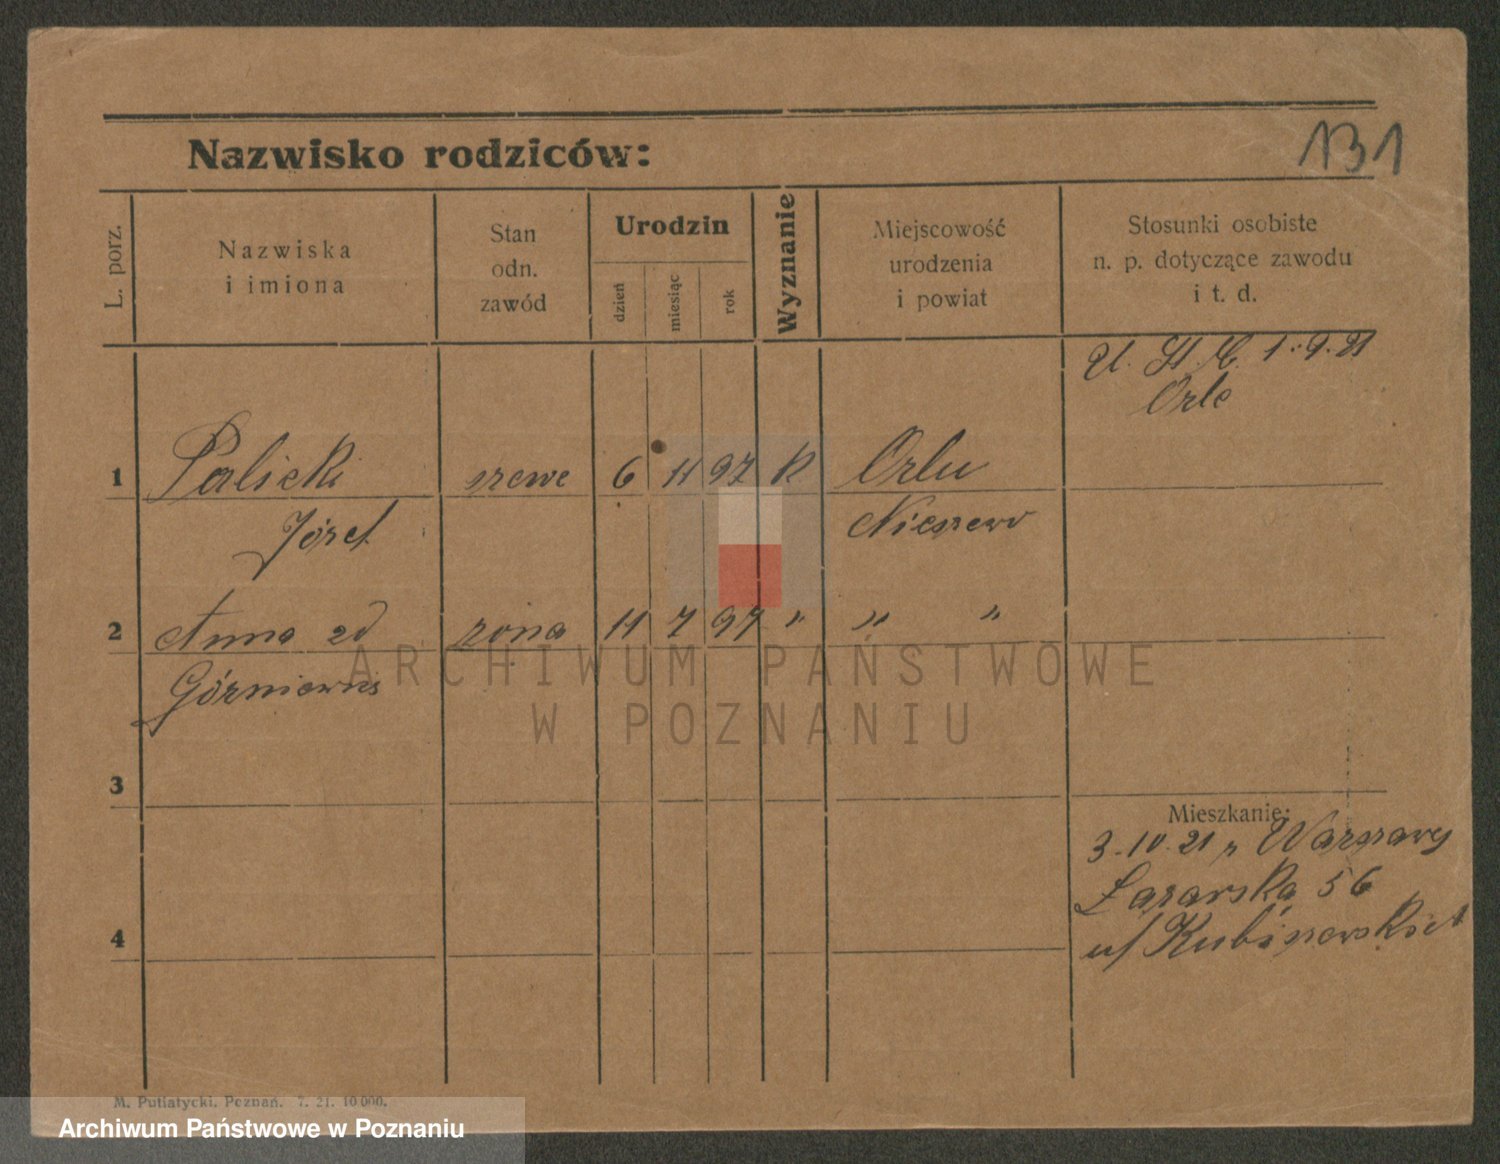 131
Nazwisko rodziców:
L. porz.
Nazwiska
i imiona
Stan
odn.
zawód
Urodzin
dzień
miesiąc
rok
Wyznanie
Miejscowość
urodzenia
i powiat
Stosunki osobiste
n. p. dotyczące zawodu
i t. d.
U. St. C. 1.9.21
Orle
1 Palicki szewc 6 11 97 K Orlu
Józef Nieszewo
2 Anna zd żona 11 7 97 " " "
3
Mieszkanie:
3.10.21 z Warszawy
Łazarska 56
4
ARCHIWUM PAŃSTWOWE
W POZNANIU
M. Putiatycki, Poznań. 7. 21. 10 000.
Archiwum Państwowe w Poznaniu